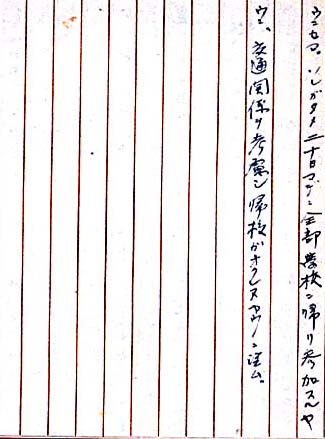 ウニセヨ。ソレガタメ二十日マデニ全部農校ニ帰リ参加スルヤ
ウニ、交通関係ヲ考慮シ帰校ガオクレヌヤウニ望ム。